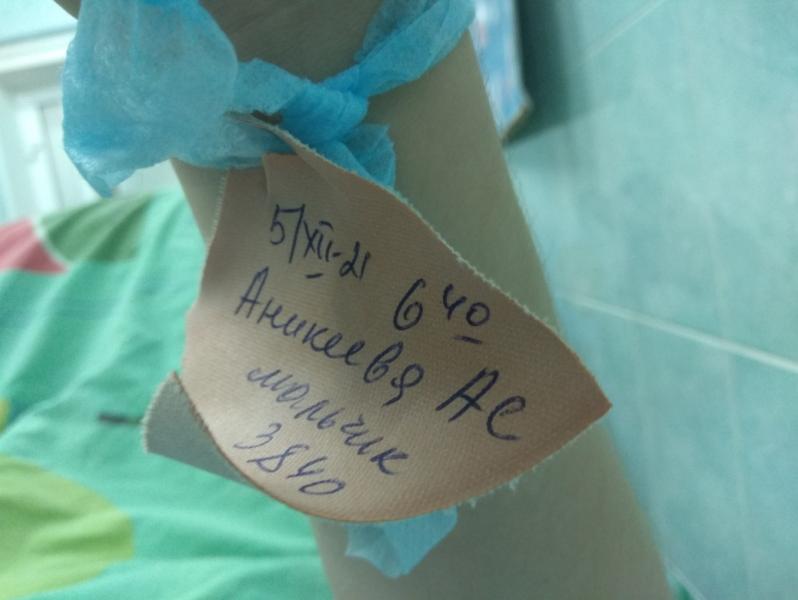 5/XII-21 6 40
Аникеева АС
мальчик
3840